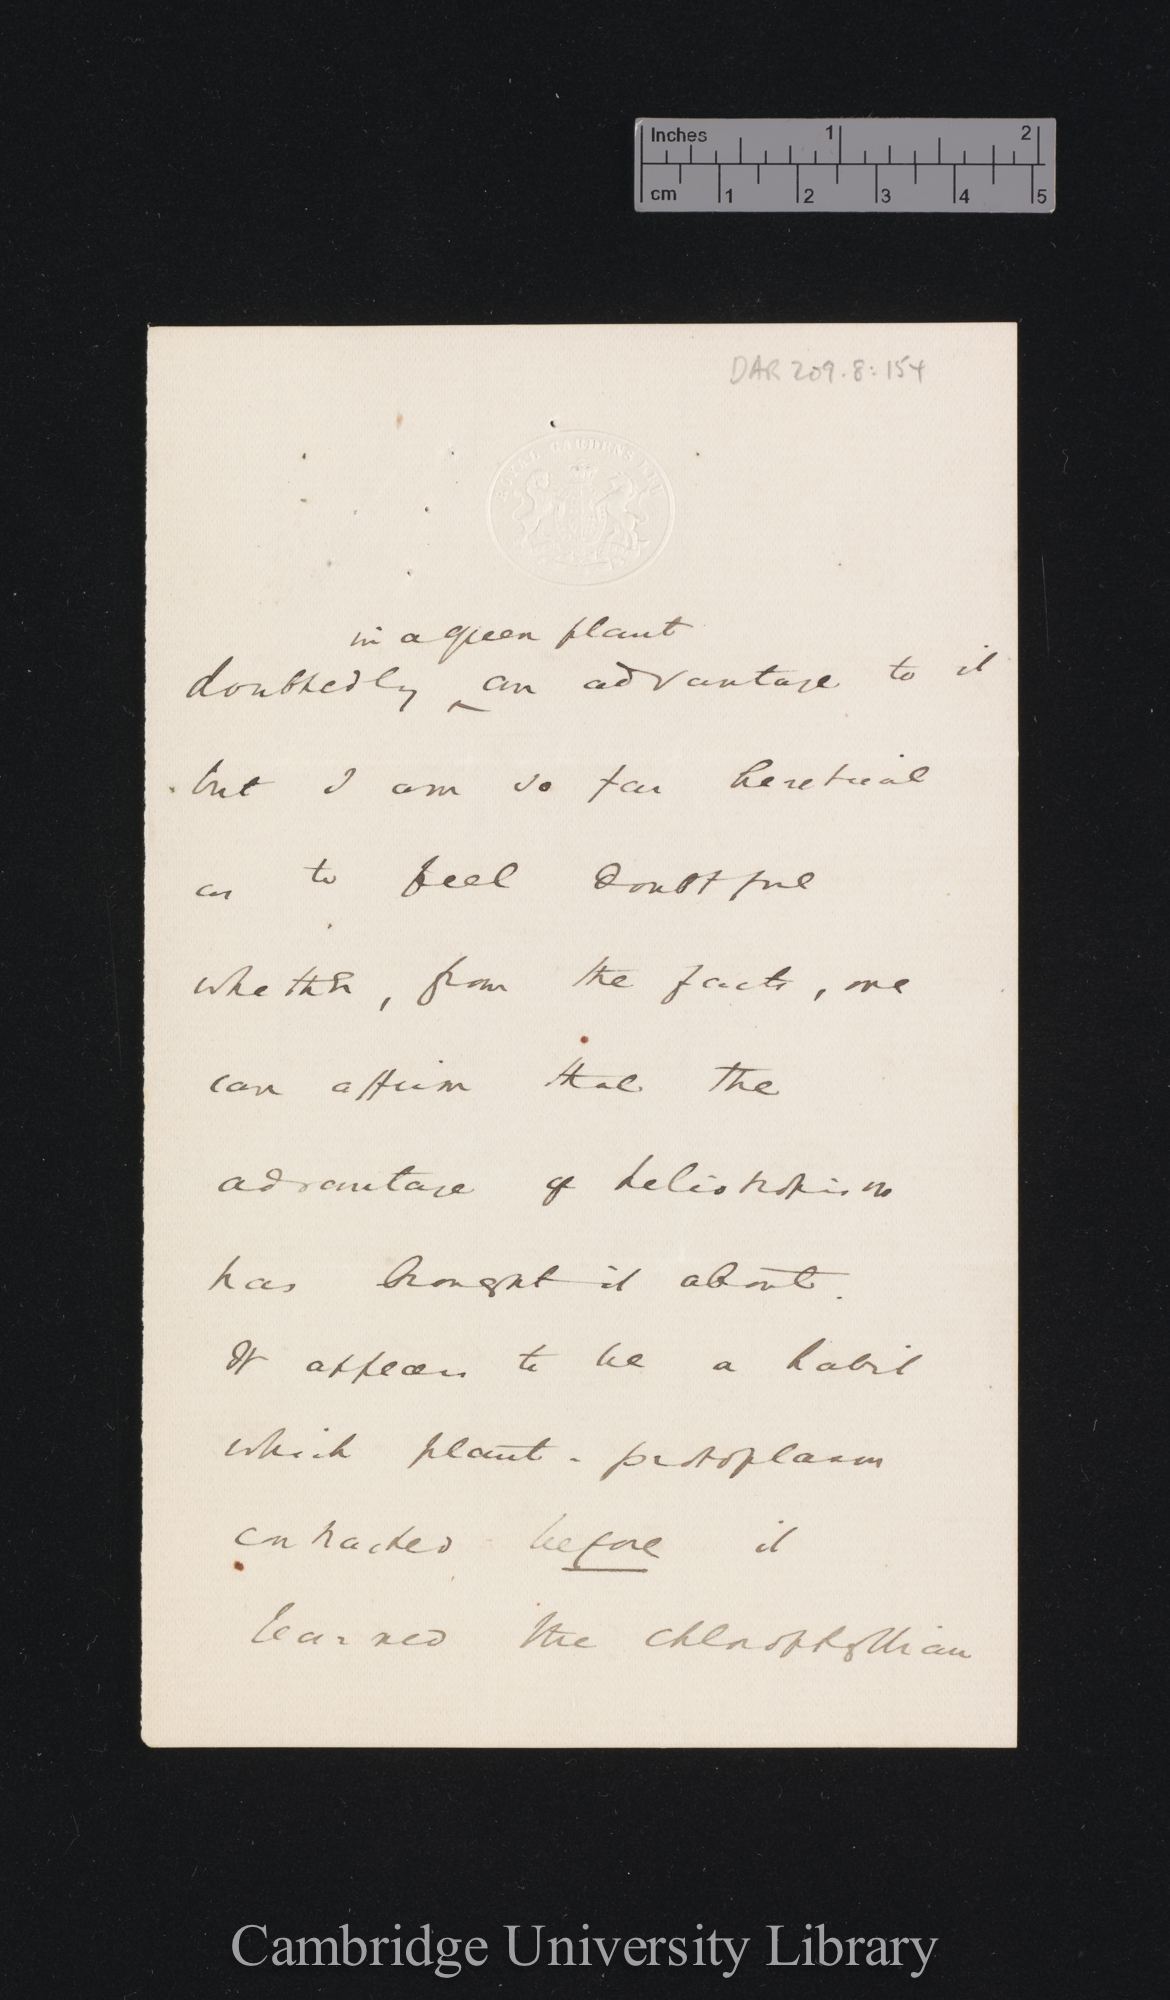 Inches 1 2
cm 1 2 3 4 5
DAR 209.8:154
ROYAL GARDENS KEW
in a green plant
doubtedly ^ an advantage to it
but I am so far heretical
as to feel doubtful
whether, from the facts, one
can affirm that the
advantage of heliotropism
has brought it about.
It appears to be a habit
which plant-protoplasm
contracted before it
learned the chlorophyllian
Cambridge University Library